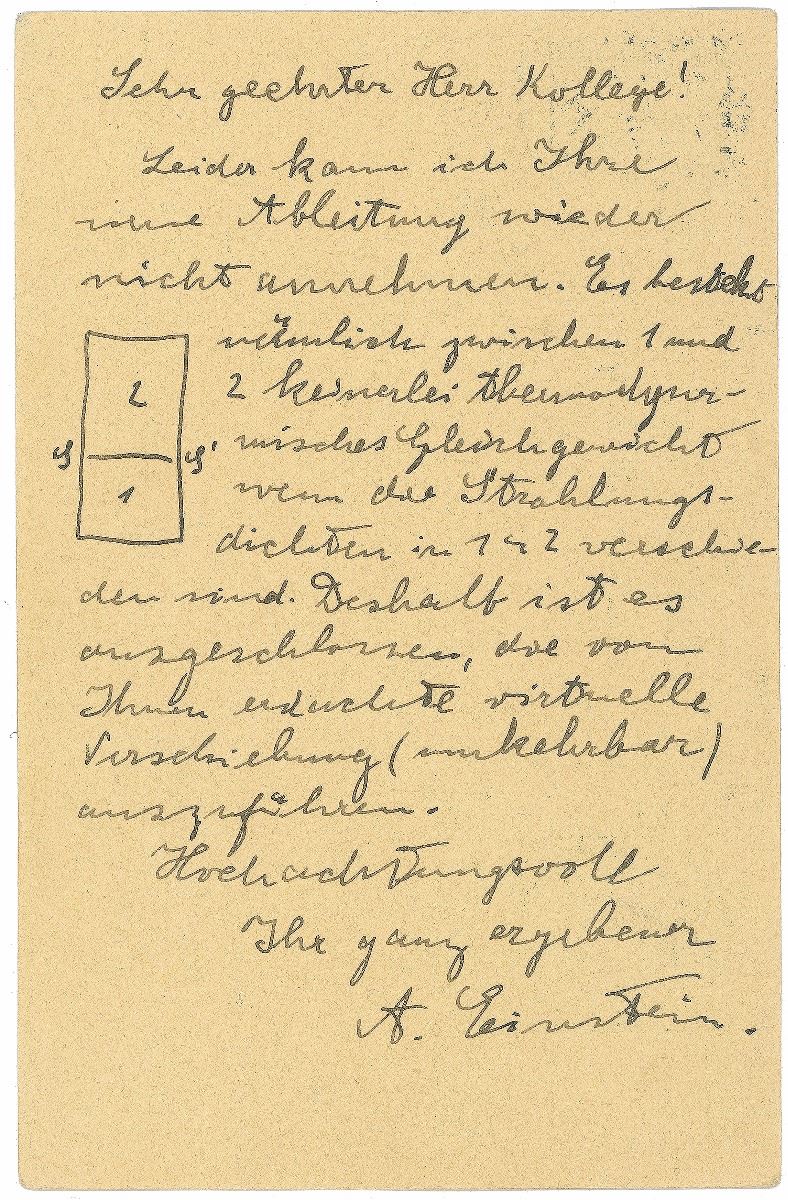 Sehr geehrter Herr Kollege!
Leider kann ich Ihre
neue Ableitung wieder
nicht annehmen. Es besteht
nämlich zwischen 1 und
2 keinerlei thermodyna-
2
misches Gleichgewicht
S S'
wenn die Strahlungs-
1
dichten in 1 u 2 verschie-
den sind. Deshalb ist es
ausgeschlossen, die von
Ihnen erdachte virtuelle
Verschiebung (umkehrbar)
auszuführen.
Hochachtungsvoll
Ihr ganz ergebener
A. Einstein.